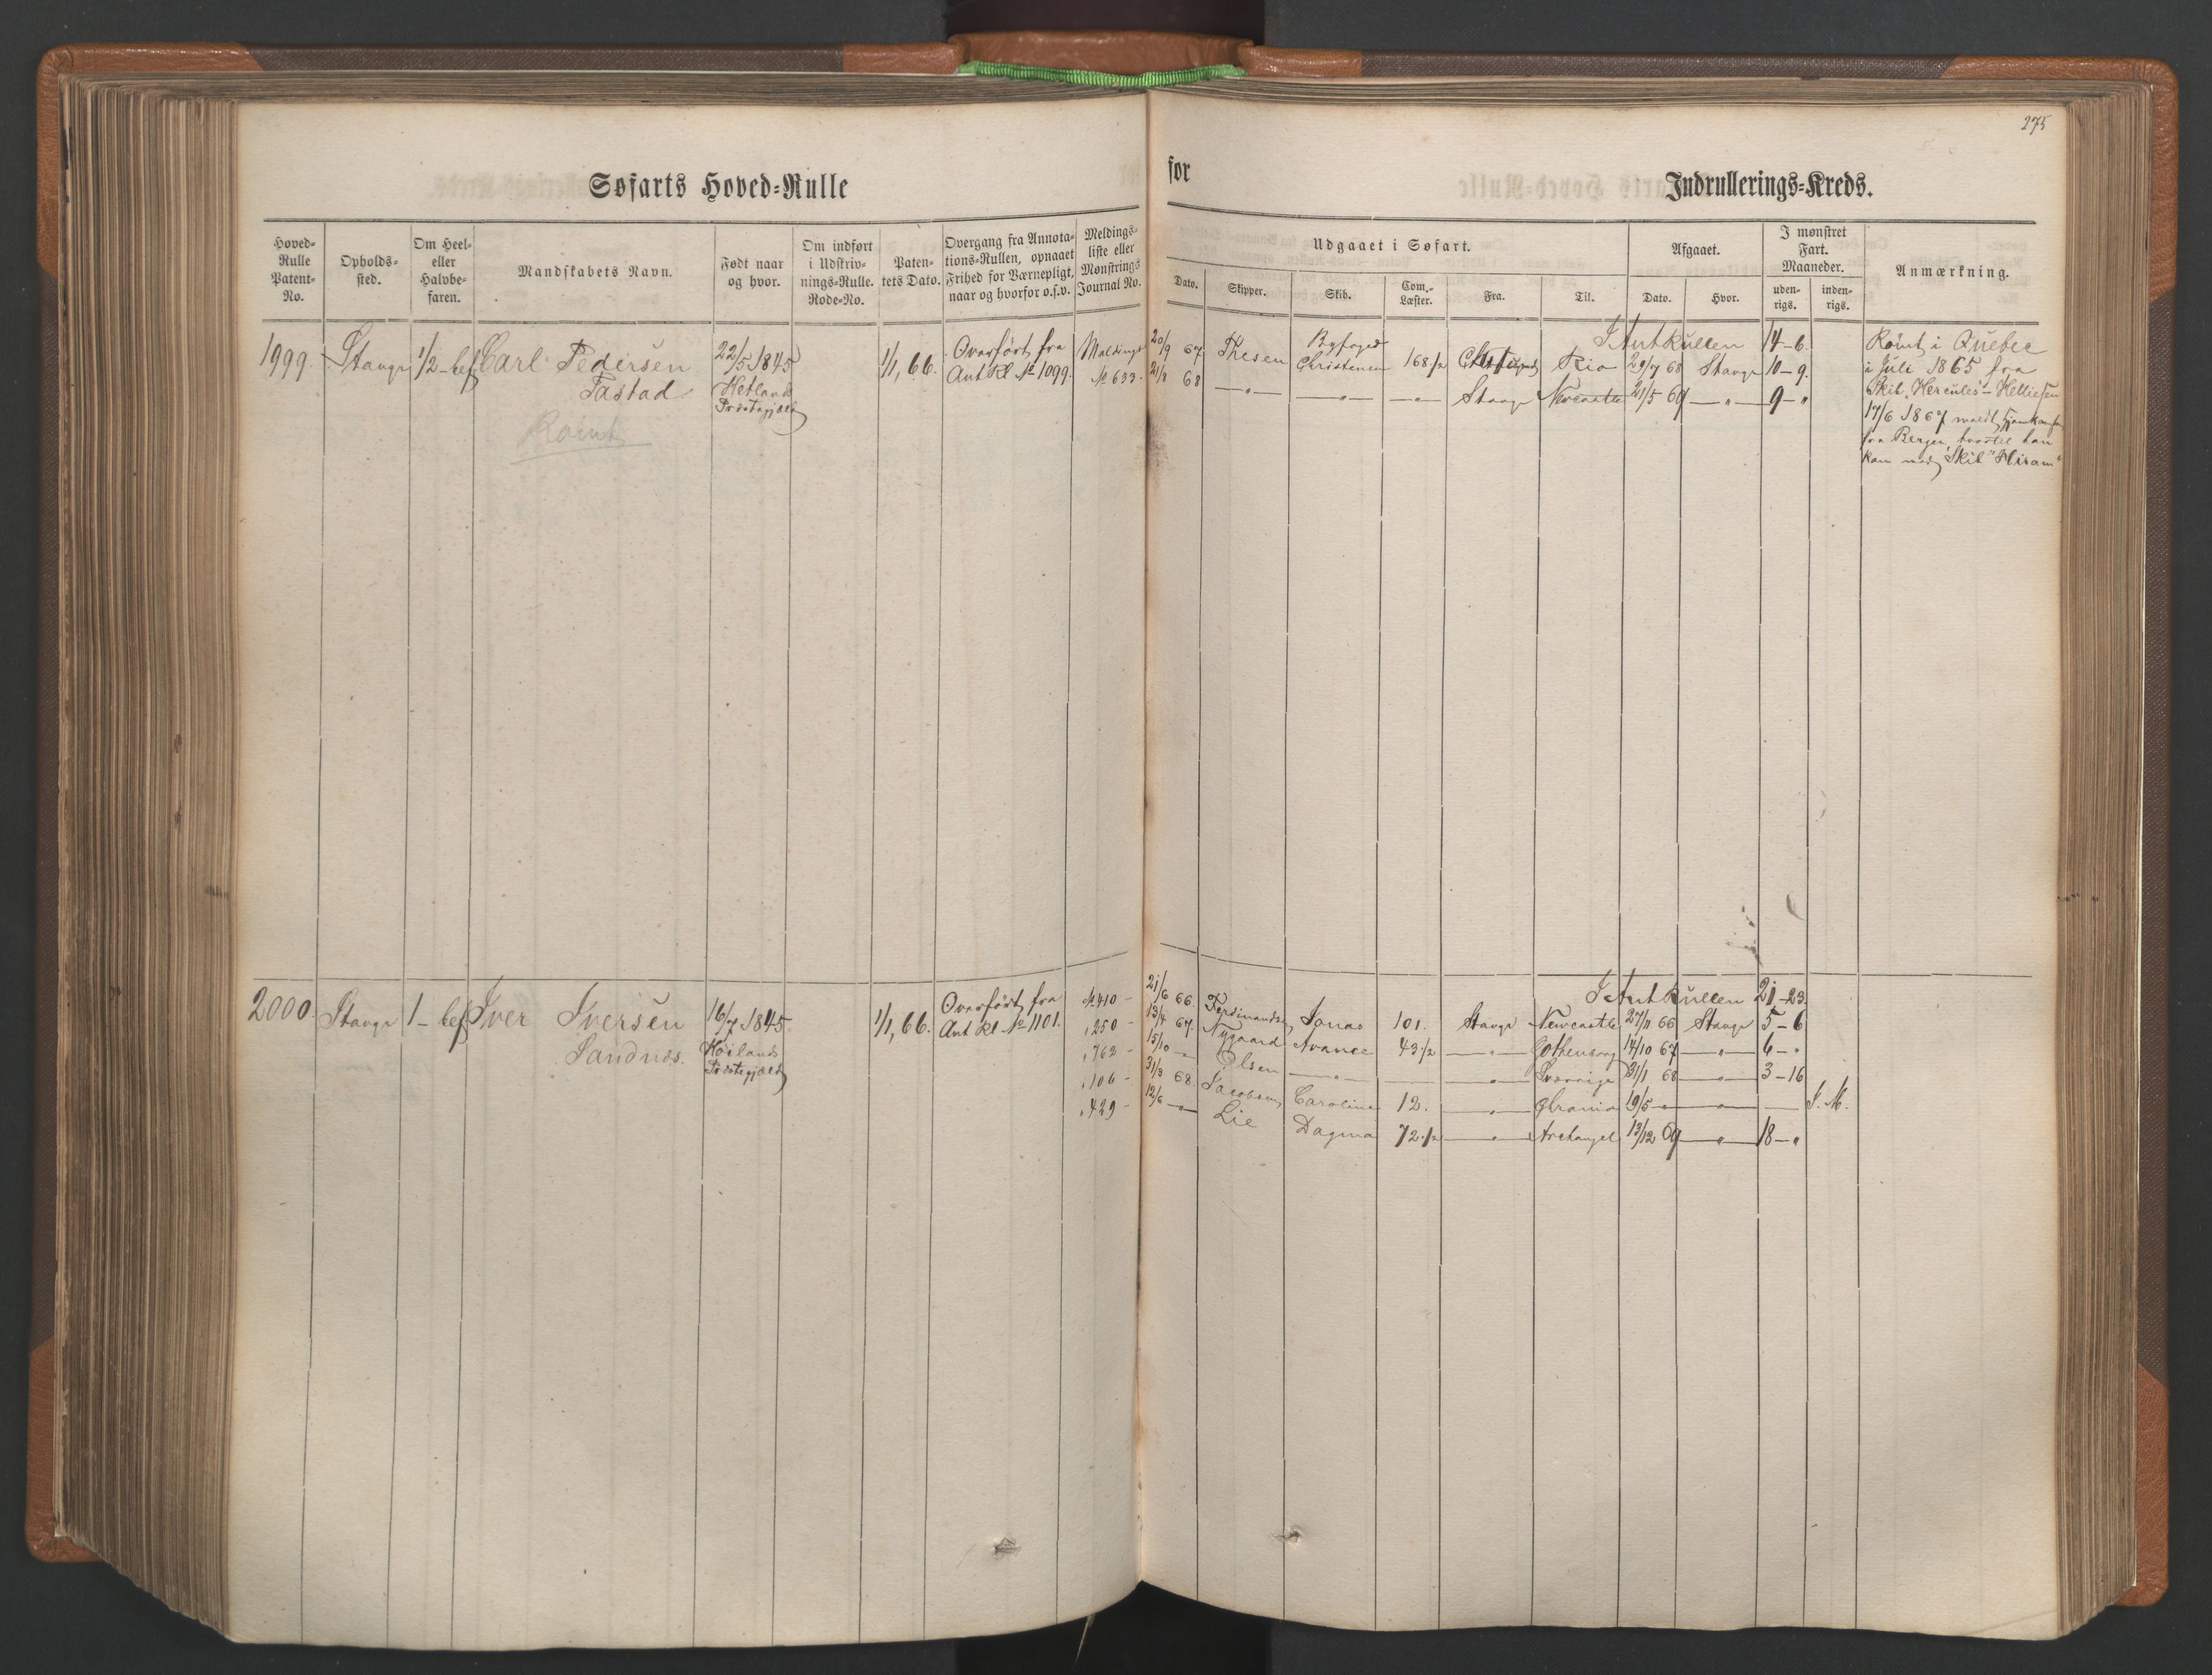 275
Søfarts Hoved-Rulle
for
Indrullerings-Kreds.
Hoved-Rulle Patent-No.
Opholds-sted.
Om Heel- eller Halvbe-faren.
Mandskabets Navn.
Født naar og hvor.
Om indført i Udskriv-nings-Rulle. Rode-No.
Paten-tets Dato.
Overgang fra Annota-tions-Rullen, opnaaet Frihed for Værnepligt, naar og hvorfor o.s.v.
Meldings-liste eller Mønstrings Journal No.
Udgaaet i Søfart.
Dato.
Skipper.
Skib.
Com.-Læster.
Fra.
Til.
Afgaaet.
Dato.
Hvor.
I mønstret Fart. Maaneder.
uden-rigs.
inden-rigs.
Anmærkning.
1999. Stavgr 1/2-bef Carl Pedersen 22/5 1845 1/1, 66. Overført fra
Tastad Hetlands Præstegjæld Ant Rl № 1099. № 633
Rømt
I Ant Rullen 14-6
20/9 67 Thesen Byfoged Christensen 168 1/2 Rio 29/7 68 Stavgr 10-9.
21/8 68 -„- -„- -„- Stavgr Newcastle 21/5 69 -„- 9-„
Rømt i Quebec
i Juli 1865 fra
Skib „Hercules" - Helliesen
17/6 1867 meldt hjemkomst
fra Bergen, hvortil han
kom med Skib "Hiram"
2000. Stavgr 1-bef Iver Iversen 16/7 1845 1/1, 66. Overført fra
Sandnæs. Høilands Præstegjæld Ant Rl № 1101.
I Ant Rullen 21-23.
№ 410 - 21/6 66. Ferdinandsen Jonas 101. Stavgr Newcastle 27/11 66 Stavgr 5-6
„ 250 - 13/4 67. Nygaard Avance 43 1/2 -„- Gothenborg 14/10 67 -„- 6-„
„ 762 - 15/10 -„- Olsen -„- -„- Sverrige 31/1 68 -„- 3-16
„ 106 - 31/3 68. Jacobsen Caroline 12. -„- 19/5 -„- -„- I. M.
„ 429 - 12/6 -„- Lie Dagma 72 1/2 -„- Archangel 13/12 69 -„- 18-„